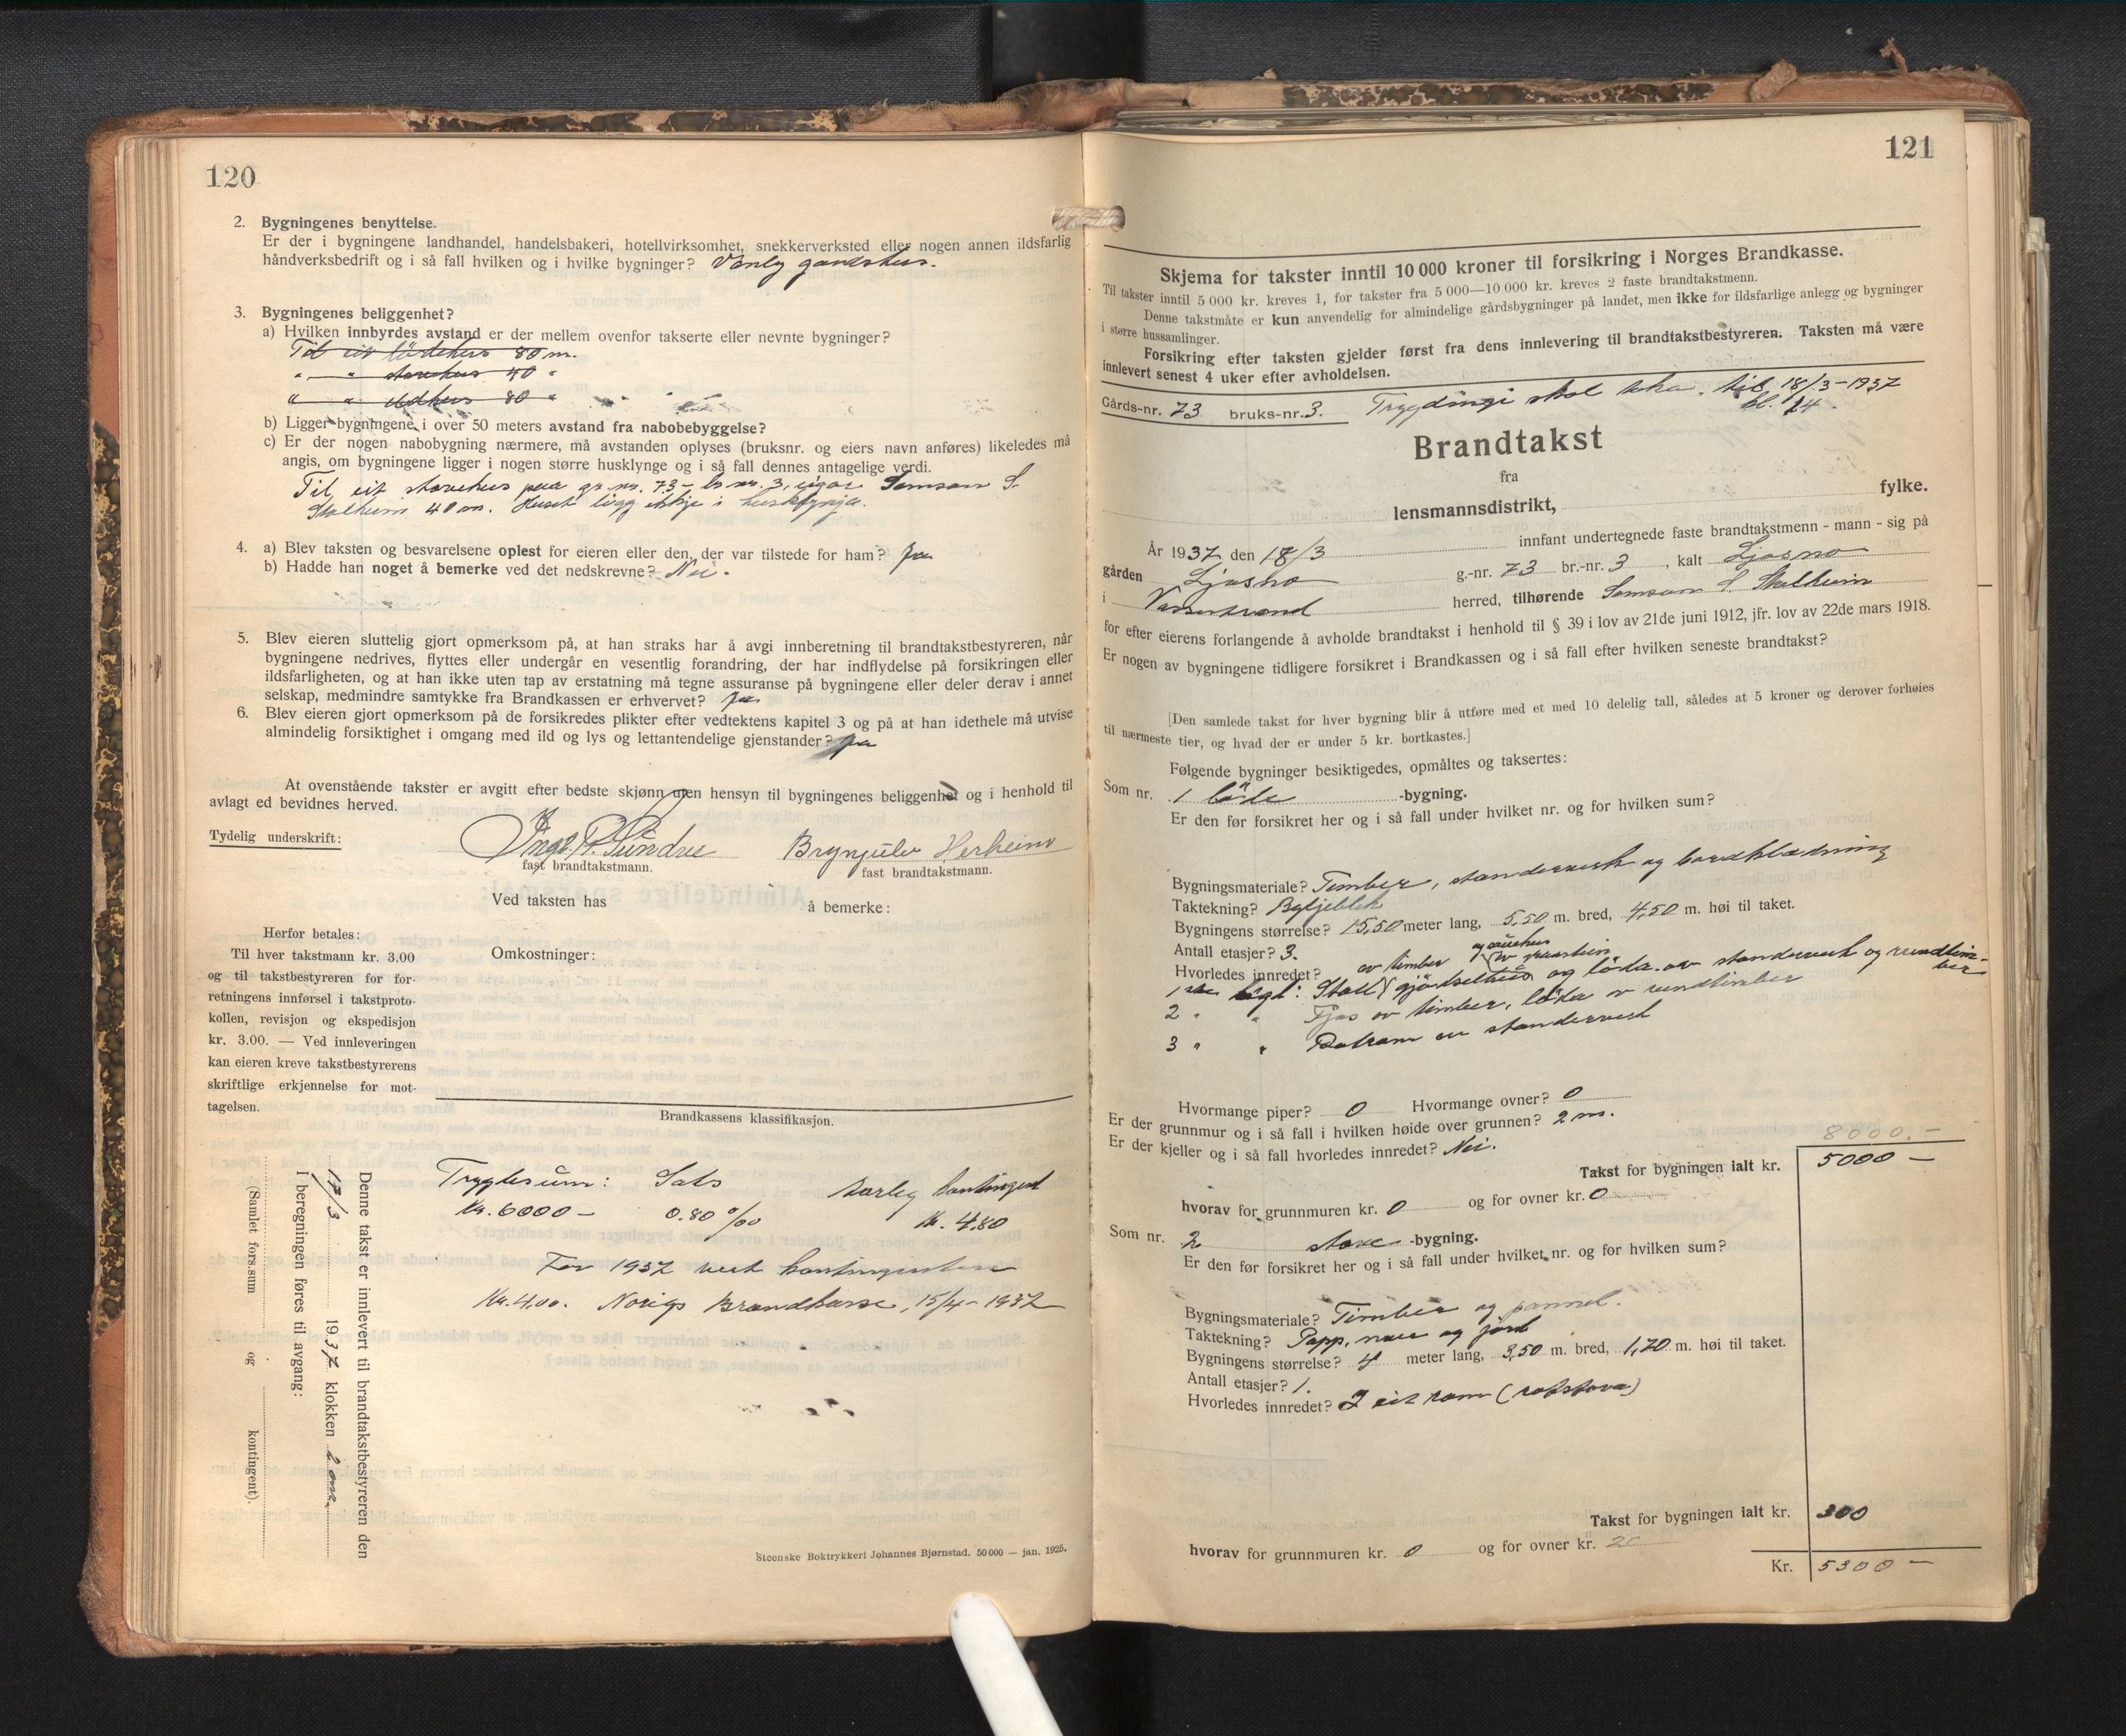 120
2. Bygningenes benyttelse.
Er der i bygningene landhandel, handelsbakeri, hotellvirksomhet, snekkerverksted eller nogen annen ildsfarlig
håndverksbedrift og i så fall hvilken og i hvilke bygninger? Vanleg gardshus.
3. Bygningenes beliggenhet?
a) Hvilken innbyrdes avstand er der mellem ovenfor takserte eller nevnte bygninger?
Til eit lødehus 80 m.
" — " stovehus 40 "
" " eldhus 80 "
b) Ligger bygningene i over 50 meters avstand fra nabobebyggelse?
c) Er der nogen nabobygning nærmere, må avstanden oplyses (bruksnr. og eiers navn anføres) likeledes må
angis, om bygningene ligger i nogen større husklynge og i så fall dennes antagelige verdi.
Til eit stovehus paa gr. nr. 73 - br. nr. 3, eigar Samson S.
Stalheim 40 m. Huset ligg ikkje i husklyngja.
4. a) Blev taksten og besvarelsene oplest for eieren eller den, der var tilstede for ham? Ja
b) Hadde han noget å bemerke ved det nedskrevne? Nei.
5. Blev eieren sluttelig gjort opmerksom på, at han straks har å avgi innberetning til brandtakstbestyreren, når
bygningene nedrives, flyttes eller undergår en vesentlig forandring, der har indflydelse på forsikringen eller
ildsfarligheten, og at han ikke uten tap av erstatning må tegne assuranse på bygningene eller deler derav i annet
selskap, medmindre samtykke fra Brandkassen er erhvervet? Ja
6. Blev eieren gjort opmerksom på de forsikredes plikter efter vedtektens kapitel 3 og på at han idethele må utvise
almindelig forsiktighet i omgang med ild og lys og lettantendelige gjenstander? Ja
At ovenstående takster er avgitt efter bedste skjønn uten hensyn til bygningenes beliggenhet og i henhold til
avlagt ed bevidnes herved.
Tydelig underskrift:
Brynjulv Herheim
fast brandtakstmann. fast brandtakstmann.
Ved taksten has å bemerke:
Herfor betales:
Til hver takstmann kr. 3.00
og til takstbestyreren for for-
retningens innførsel i takstproto-
kollen, revisjon og ekspedisjon
kr. 3.00. — Ved innleveringen
kan eieren kreve takstbestyrerens
skriftlige erkjennelse for mot-
tagelsen.
Omkostninger:
Brandkassens klassifikasjon.
Trygdesum: Sats Aarleg kontingent
Kr. 6000 – 0.80 % Kr. 4.80
For 1937 vert kontingenten
Kr. 4.00. Norigs Brandkasse, 15/4 - 1937
Denne takst er innlevert til brandtakstbestyreren den
17/3 1937 klokken 2 em.
I beregningen føres til avgang:
(Samlet fors.sum og kontingent).
Steenske Boktrykkeri Johannes Bjørnstad. 50 000 — jan. 1925.
121
Skjema for takster inntil 10 000 kroner til forsikring i Norges Brandkasse.
Til takster inntil 5 000 kr. kreves 1, for takster fra 5 000—10 000 kr. kreves 2 faste brandtakstmenn.
Denne takstmåte er kun anvendelig for almindelige gårdsbygninger på landet, men ikke for ildsfarlige anlegg og bygninger
i større hussamlinger.
Forsikring efter taksten gjelder først fra dens innlevering til brandtakstbestyreren. Taksten må være
innlevert senest 4 uker efter avholdelsen.
Gårds-nr. 73 bruks-nr. 3. Trygdingi skal taka til 18/3-1937
kl. 24.
Brandtakst
fra
lensmannsdistrikt, fylke.
År 1937 den 18/3 innfant undertegnede faste brandtakstmenn - mann - sig på
gården Ljosno g.-nr. 73 br.-nr. 3, kalt Ljosno
i Vossestrand herred, tilhørende Samson S. Stalheim
for efter eierens forlangende å avholde brandtakst i henhold til § 39 i lov av 21de juni 1912, jfr. lov av 22de mars 1918.
Er nogen av bygningene tidligere forsikret i Brandkassen og i så fall efter hvilken seneste brandtakst?
[Den samlede takst for hver bygning blir å utføre med et med 10 delelig tall, således at 5 kroner og derover forhøies
til nærmeste tier, og hvad der er under 5 kr. bortkastes.]
Følgende bygninger besiktigedes, opmåltes og taksertes:
Som nr. 1 löde -bygning.
Er den før forsikret her og i så fall under hvilket nr. og for hvilken sum?
Bygningsmateriale? Timber, standerverk og bordklædning
Taktekning? Bylgjeblek
Bygningens størrelse? 15,50 meter lang, 5,50 m. bred, 4,50 m. høi til taket.
Antall etasjer? 3.
Hvorledes innredet? av timber og sauehus av graastein
1ste högd: Stall gjödselhus og löda av standerverk og rundtim-
ber
2 " " Fjos av timber, löda av rundtimber
3 " " av standerverk
Hvormange piper? 0 Hvormange ovner? 0
Er der grunnmur og i så fall i hvilken høide over grunnen? 2 m.
Er der kjeller og i så fall hvorledes innredet? Nei.
8000.-
Takst for bygningen ialt kr. 5000 –
hvorav for grunnmuren kr. 0 og for ovner kr. 0
Som nr. 2 stove -bygning.
Er den før forsikret her og i så fall under hvilket nr. og for hvilken sum?
Bygningsmateriale? Timber og pannel.
Taktekning? Papp, næver og jord
Bygningens størrelse? 4 meter lang, 3,50 m. bred, 1,70 m. høi til taket.
Antall etasjer? 1.
Hvorledes innredet? I eit rom (rokstova)
Takst for bygningen ialt kr. 300
hvorav for grunnmuren kr. 0 og for ovner kr. 20
Kr. 5300 –